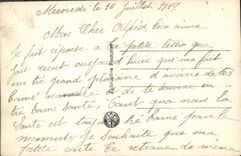 Mercredi le 10 Juillet 1907
Mon Cher Alfred bien aimé
Je fait réponse a ta petite lettre que
jait recut aujourd hui que ma fait
un tré grand plaisire d'avoire de tes
bonne nouvelle et de te en
tré bonne santé, tant qua nous la
Santé est toujours tré bonne pour le
moment Je Souhaite que ma
petite carte te retrouve de même